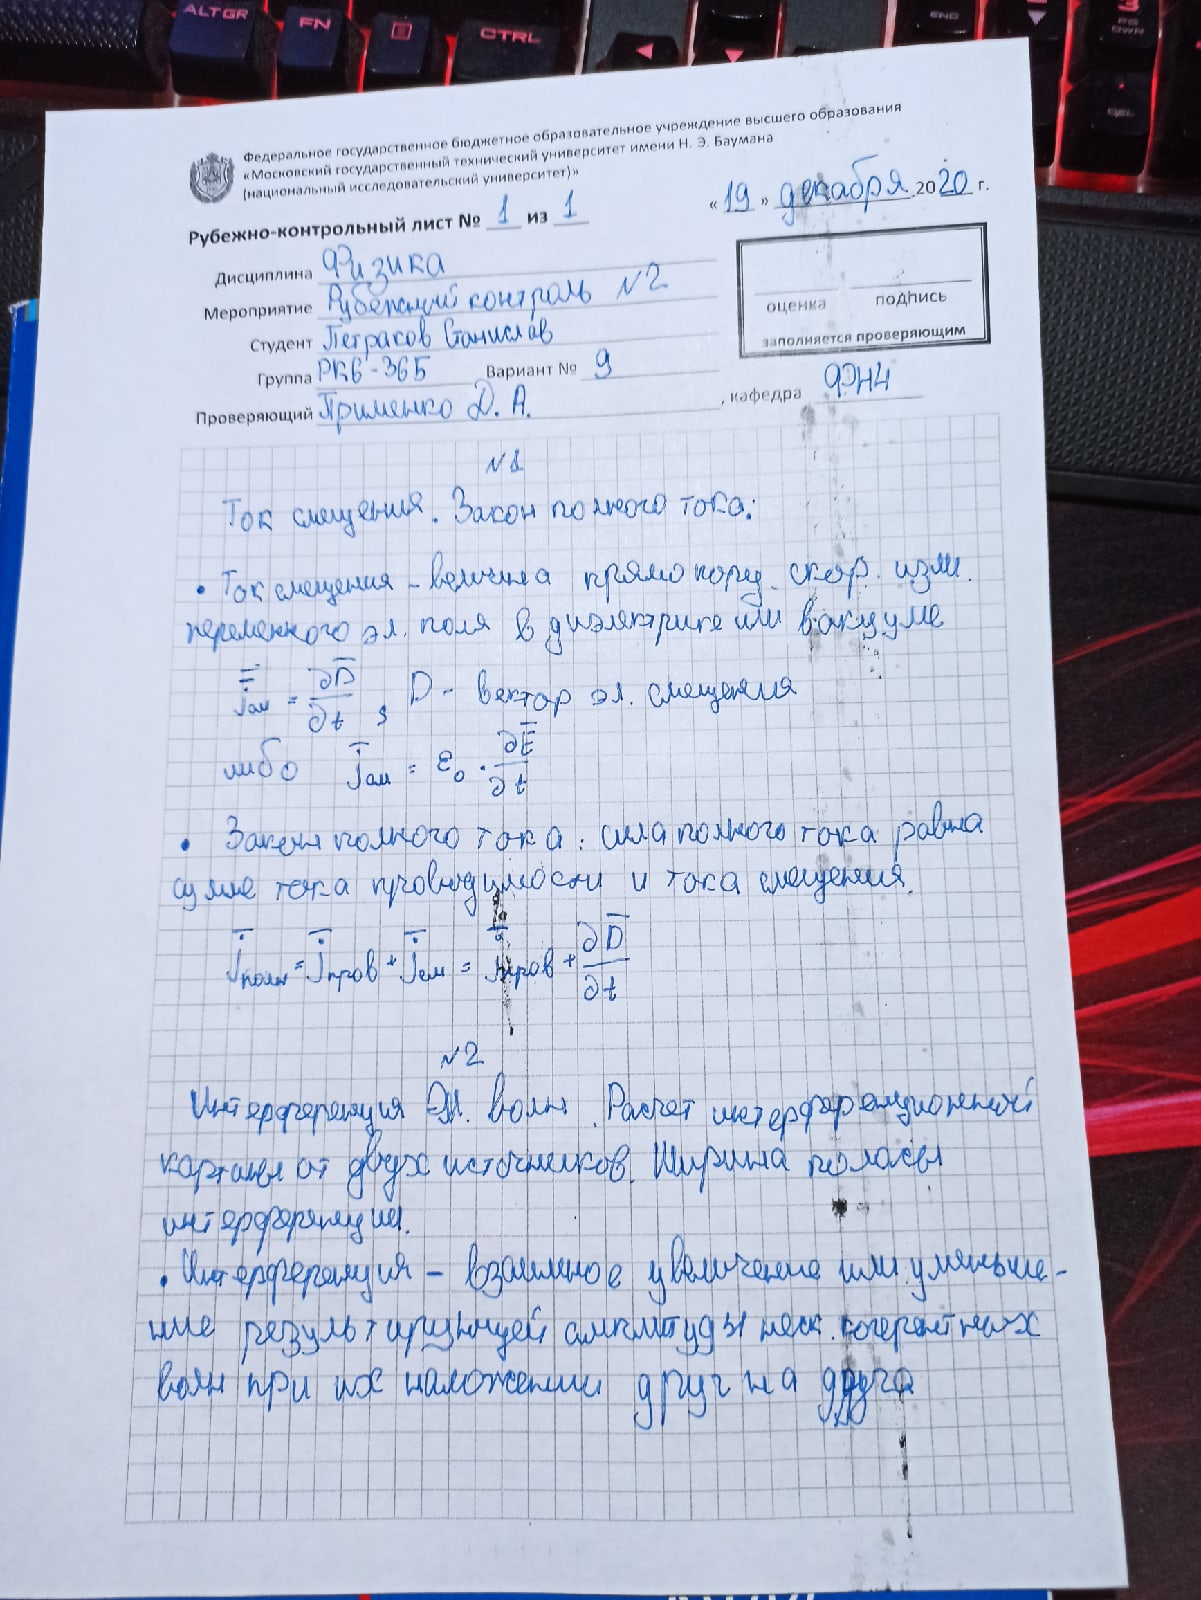 ALTGR
FN
CTRL
END
3
PG
DWN
DEL
Федеральное государственное бюджетное образовательное учреждение высшего образования
«Московский государственный технический университет имени Н. Э. Баумана
(национальный исследовательский университет)»
Рубежно-контрольный лист № 1 из 1
«19» декабря 2020 г.
Дисциплина Физика
Мероприятие Рубежный контроль №2
Студент Петраков Станислав
Группа РК6-36Б Вариант № 9
Проверяющий Применко Д. А. , кафедра ФН4
оценка подпись
заполняется проверяющим
№1
Ток смещения. Закон полного тока:
• Ток смещения - величина прямо порц. скор. изм.
переменного эл. поля в диэлектрике или вакууме
j̅см = ∂D̅/∂t, D - вектор эл. смещения
либо j̅см = ε₀ · ∂E̅/∂t
• Закон полного тока: сила полного тока равна
сумме тока проводимости и тока смещения.
j̅полн = j̅пров + j̅см = j̅пров + ∂D̅/∂t
№2
Интерференция ЭМ. волн. Расчет интерференционной
картины от двух источников. Ширина полосы
интерференции.
• Интерференция - взаимное увеличение или уменьше-
ние результирующей амплитуды неск. когерентных
волн при их наложении друг на друга